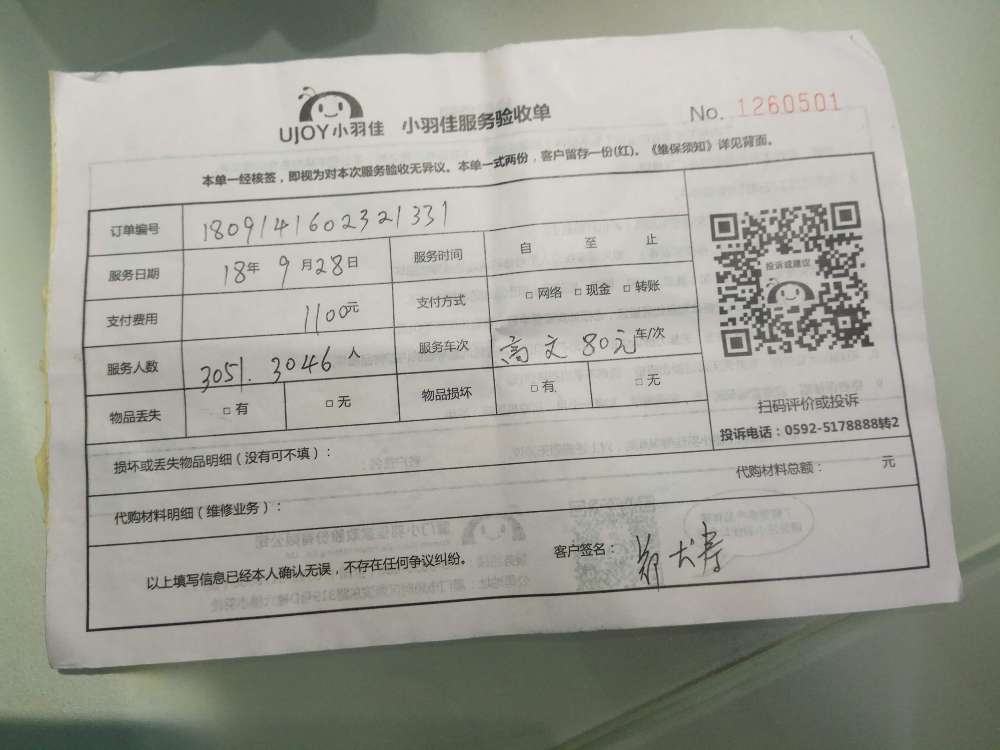 UJOY小羽佳 小羽佳服务验收单 No. 1260501
本单一经核签，即视为对本次服务验收无异议。本单一式两份，客户留存一份(红)。《维保须知》详见背面。
订单编号 1809141602321331
服务日期 18年 9月28日 服务时间 自 至 止
支付费用 1100元 支付方式 □ 网络 □ 现金 □ 转账
服务人数 3051. 3046 人 服务车次 高文 80元 车/次
物品丢失 □ 有 □ 无 物品损坏 □ 有 □ 无
投诉或建议
扫码评价或投诉
投诉电话：0592-5178888转2
损坏或丢失物品明细（没有可不填）：
代购材料明细（维修业务）： 代购材料总额： 元
以上填写信息已经本人确认无误，不存在任何争议纠纷。 客户签名：